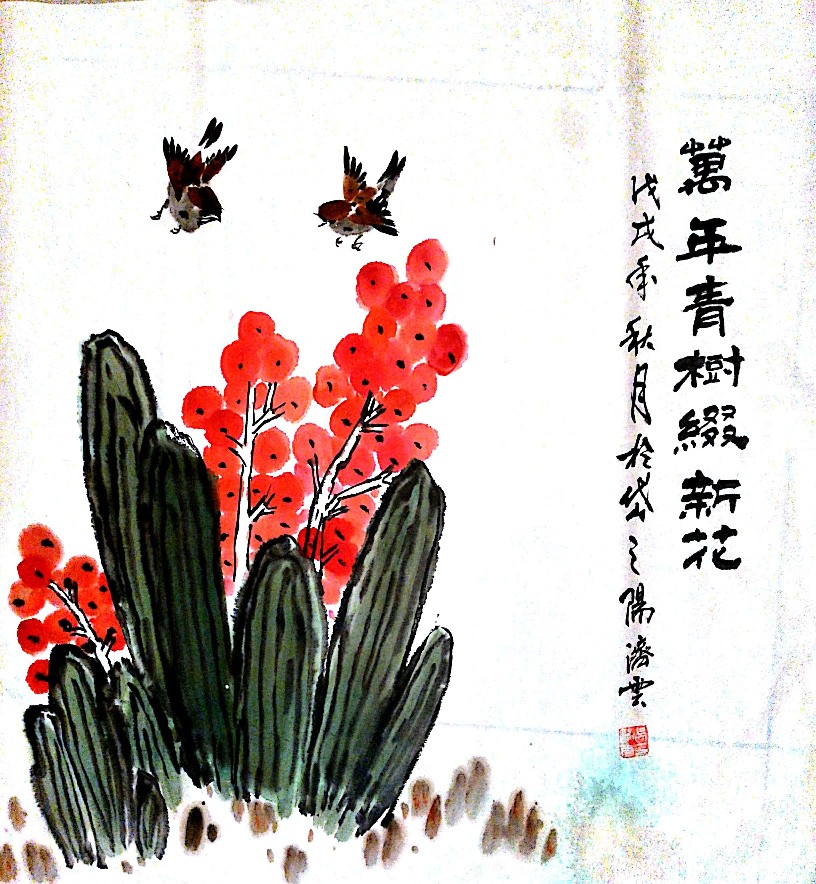 萬年青樹綴新花
戊戌年秋月於岱之陽濟雲